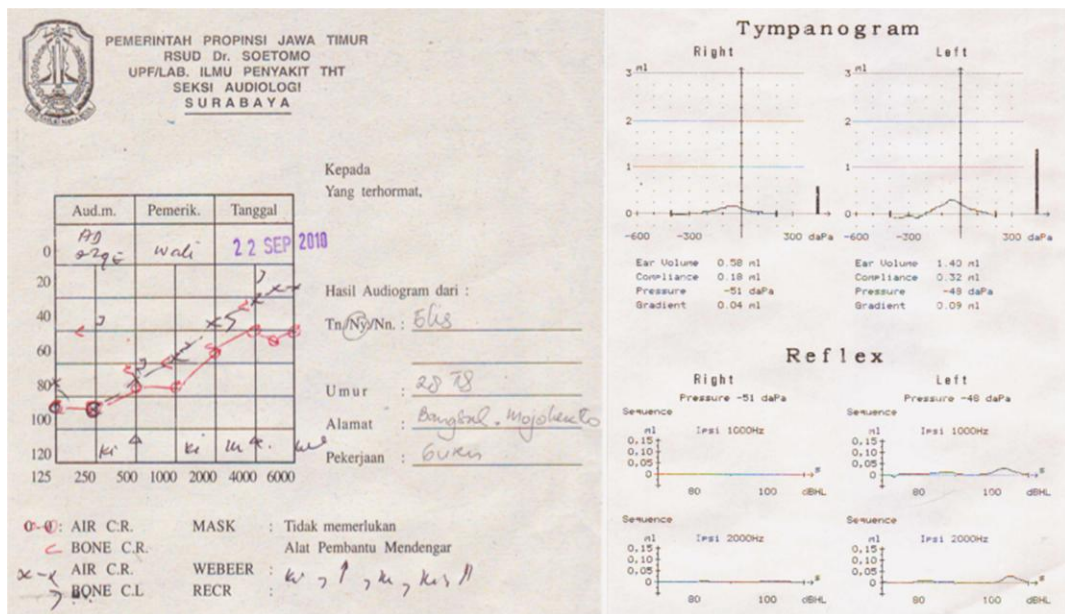 PEMERINTAH PROPINSI JAWA TIMUR
RSUD Dr. SOETOMO
UPF/LAB. ILMU PENYAKIT THT
SEKSI AUDIOLOGI
SURABAYA
Kepada
Yang terhormat,
Aud.m. Pemerik. Tanggal
22 SEP 2010
0
20
40
60
80
100
120
125 250 500 1000 2000 4000 6000
Hasil Audiogram dari :
Tn/Ny/Nn. : Elis
Umur : 28
Alamat : Bangsal. Mojokerto
Pekerjaan :
: AIR C.R. MASK : Tidak memerlukan
BONE C.R. Alat Pembantu Mendengar
AIR C.R. WEBEER :
BONE C.L RECR :
Tympanogram
Right
ml
3
2
1
0
-600 -300 300 daPa
Ear Volume 0.58 ml
Compliance 0.18 ml
Pressure -51 daPa
Gradient 0.04 ml
Left
ml
3
2
1
0
-600 -300 300 daPa
Ear Volume 1.40 ml
Compliance 0.32 ml
Pressure -48 daPa
Gradient 0.09 ml
Reflex
Right
Pressure -51 daPa
Sequence
ml Ipsi 1000Hz
0.15
0.10
0.05
s
80 100 dBHL
Sequence
ml Ipsi 2000Hz
0.15
0.10
0.05
s
80 100 dBHL
Left
Pressure -48 daPa
Sequence
ml Ipsi 1000Hz
0.15
0.10
0.05
s
80 100 dBHL
Sequence
ml Ipsi 2000Hz
0.15
0.10
0.05
s
80 100 dBHL